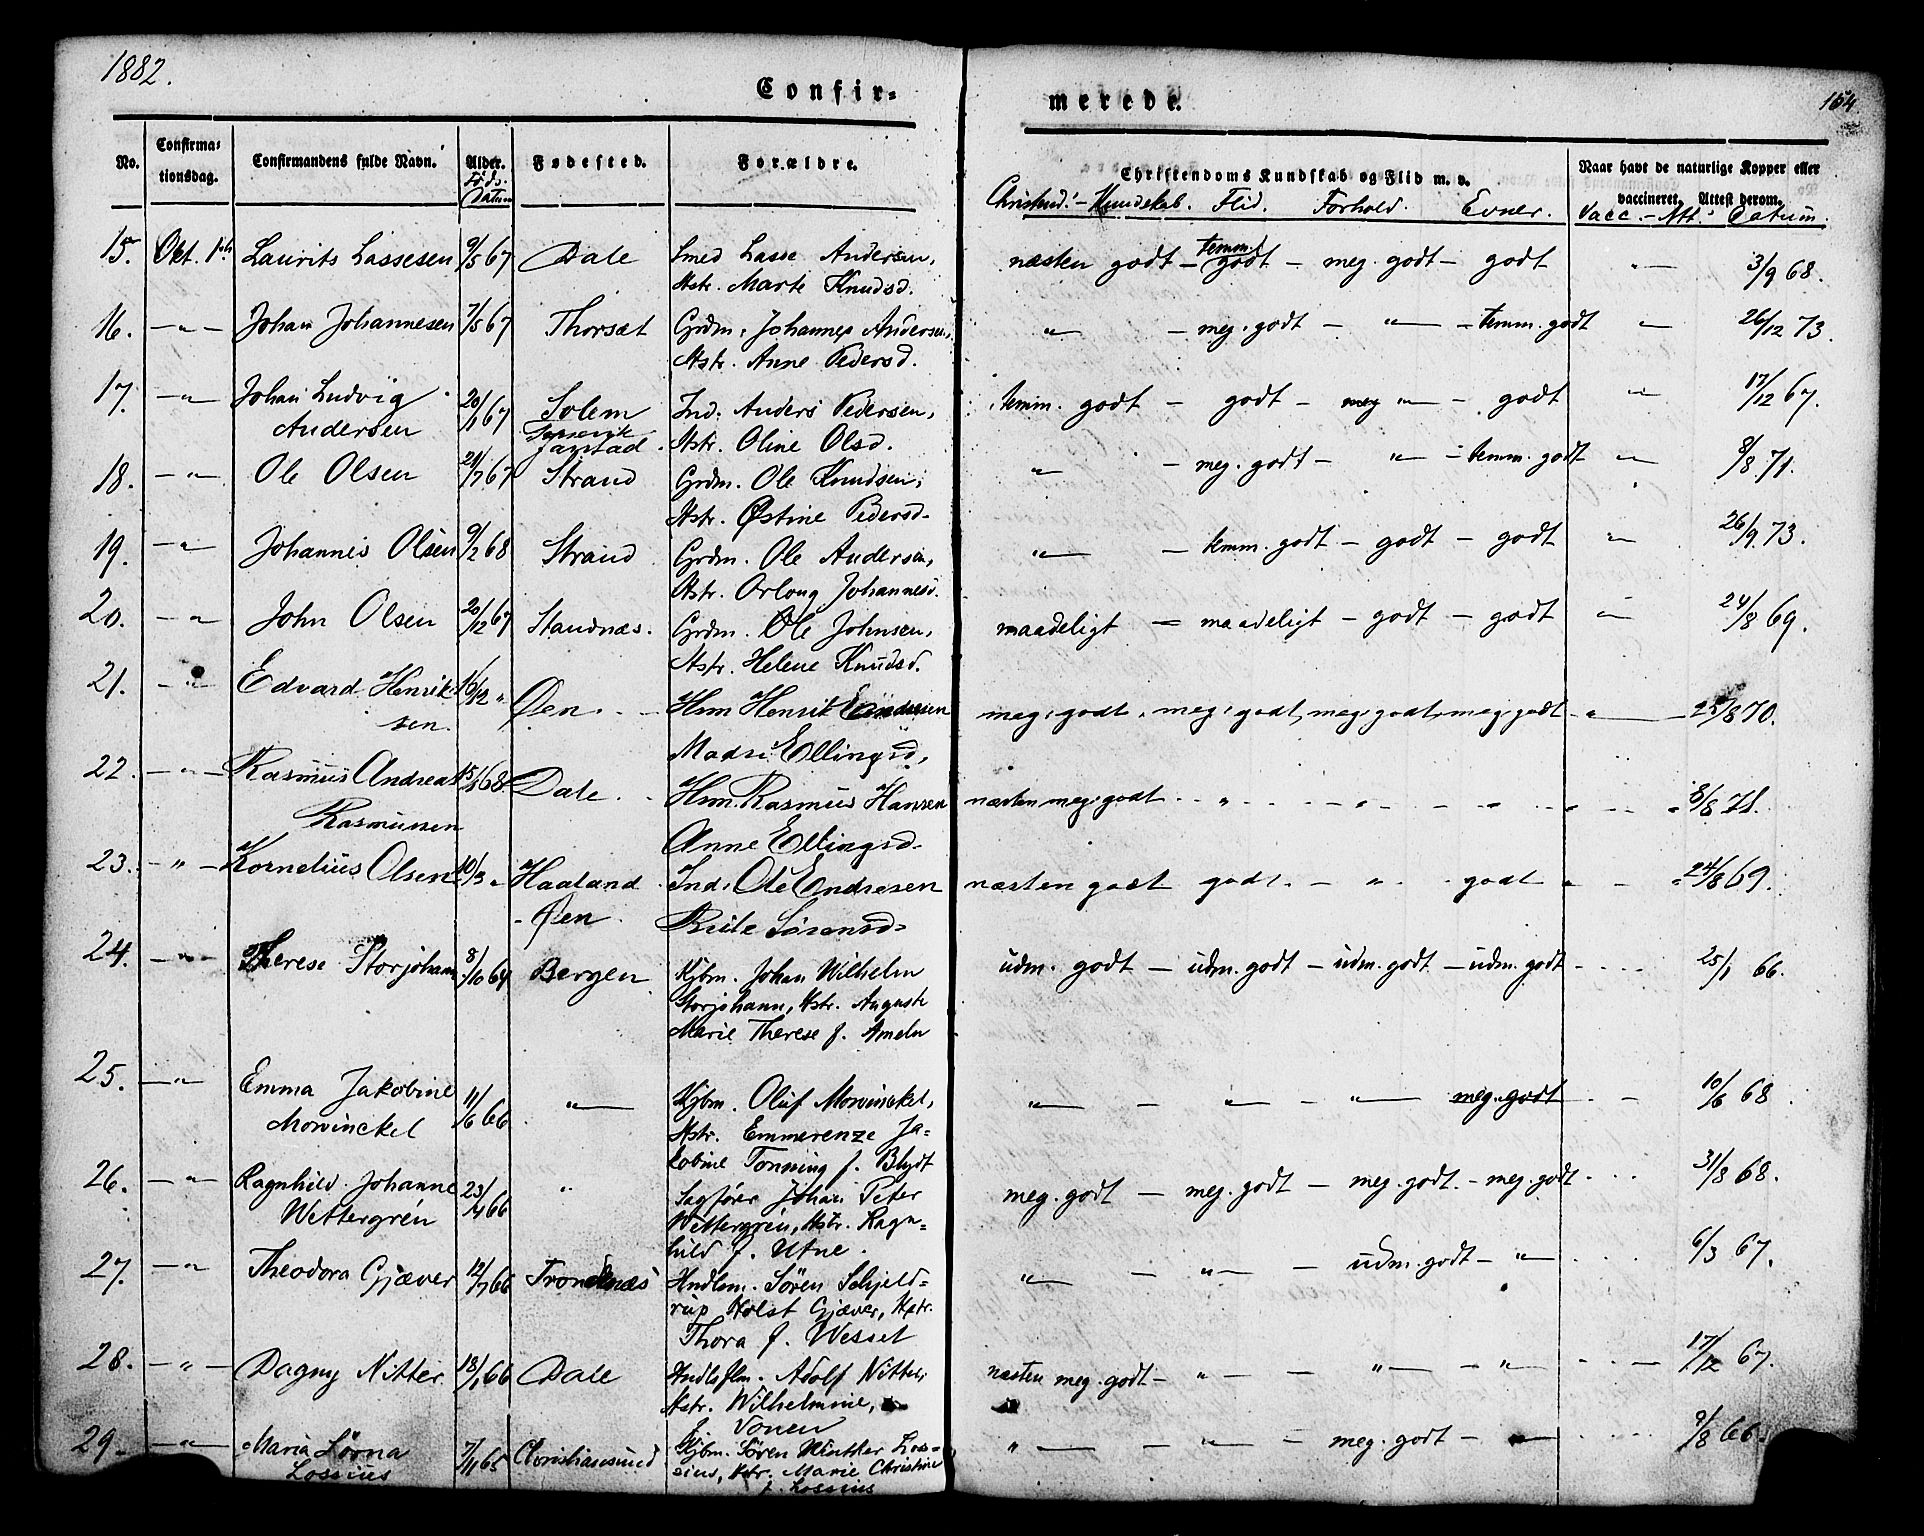 1882.
Confir=
merede.
154
No.
Confirma=
tionsdag.
Confirmandens fulde Navn.
Alder.
Føds.
Datum
Fødested.
Forældre.
Christendoms Kundskab og Flid m. v.
Christend.- Kundskab. Flid. Forhold. Evner.
Naar havt de naturlige Kopper eller
vaccineret. Attest derom.
Vacc. - Att.s Datum.
15. Okt. 1ste Laurits Lassesen 9/5 67 Dale Smed Lasse Andersen, næsten godt - temm. godt - meg. godt - godt " 3/9 68.
Hstr. Marte Knudsd.
16. - " - Johan Johannesen 7/5 67 Thorsæt Grdm. Johannes Andersen, " - meg. godt - " - temm. godt " 26/12 73.
Hstr. Anne Pedersd.
17. - " - Johan Ludvig 20/1 67 Solem Ind. Anders Pedersen, temm. godt - godt - meg " - godt " 17/12 67.
Andersen Jarstad. Hstr. Oline Olsd.
18. - " - Ole Olsen 21/7 67 Strand Grdm. Ole Knudsen, " - meg. godt - " - temm. godt " 8/8 71.
Hstr. Østine Pedersd.
19. - " Johannes Olsen 9/2 68 Strand Grdm. Ole Andersen, " - temm. godt - godt - godt " 26/9 73.
Hstr. Orloug Johannesd.
20. - " John Olsen 20/12 67 Standnæs. Grdm. Ole Johnsen, maadeligt - maadeligt - godt - godt " 24/8 69.
Hstr. Helene Knudsd.
21. - " - Edvard Henrik= 16/12 " Øen. Hsm Henrik Endresen meg. godt, meg. godt, meg. godt, meg. godt " 25/8 70.
sen. Madsi Ellingsd,
22. - " - Rasmus Andreas 15/3 68. Dale. Hsm. Rasmus Hansen næsten meg. godt - " - " - " " 8/8 71.
Rasmussen Anne Ellingsd-
23. - " - Kornelius Olsen 10/3 " Haaland Ind. Ole Endresen næsten godt godt. - " - godt " 24/8 69.
- Øen. Brite Sørensd-
24. - " - Therese Storjohann 8/10 64 Bergen Kjbm. Johan Wilhelm udm. godt - udm. godt - udm. godt - udm. godt 25/1 66.
Storjohann, Hstr. Auguste
Marie Therese f. Ameln
25. - " - Emma Jakobine 11/6 66 " Kjbm. Oluf Mowinckel, " - " - " meg. godt 10/6 68
Mowinckel Hstr. Emmerenze Ja=
kobine Tonning f. Blydt
26. - " - Ragnhild Johanne 23/4 66 " Sagfører Johan Peter meg. godt - meg. godt - meg. godt. - meg. godt 31/8 68.
Wettergrén Wettergrén, Hstr. Ragn=
hild f. Utne.
27. - " - Theodora Gjæver 12/7 66 Trondenæs Hndlsm. Søren Schjeld= " - " - udm. godt - " 6/3 67.
rup Holst Gjæver, Hstr.
Thora f. Wessel
28. - " - Dagny Nitter 18/1 66 Dale Hndlsflm. Adolf Nitter, næsten meg. godt - " - " - " 17/12 67.
Hstr. Wilhelmine,
f. Vonen
29. - " - Maria Lorna 7/11 65 Christiansund Kjbm. Søren Winther Los= " - " - meg. godt - " 9/8 66.
Lossius sius, Hstr. Marie Christine
f. Lossius